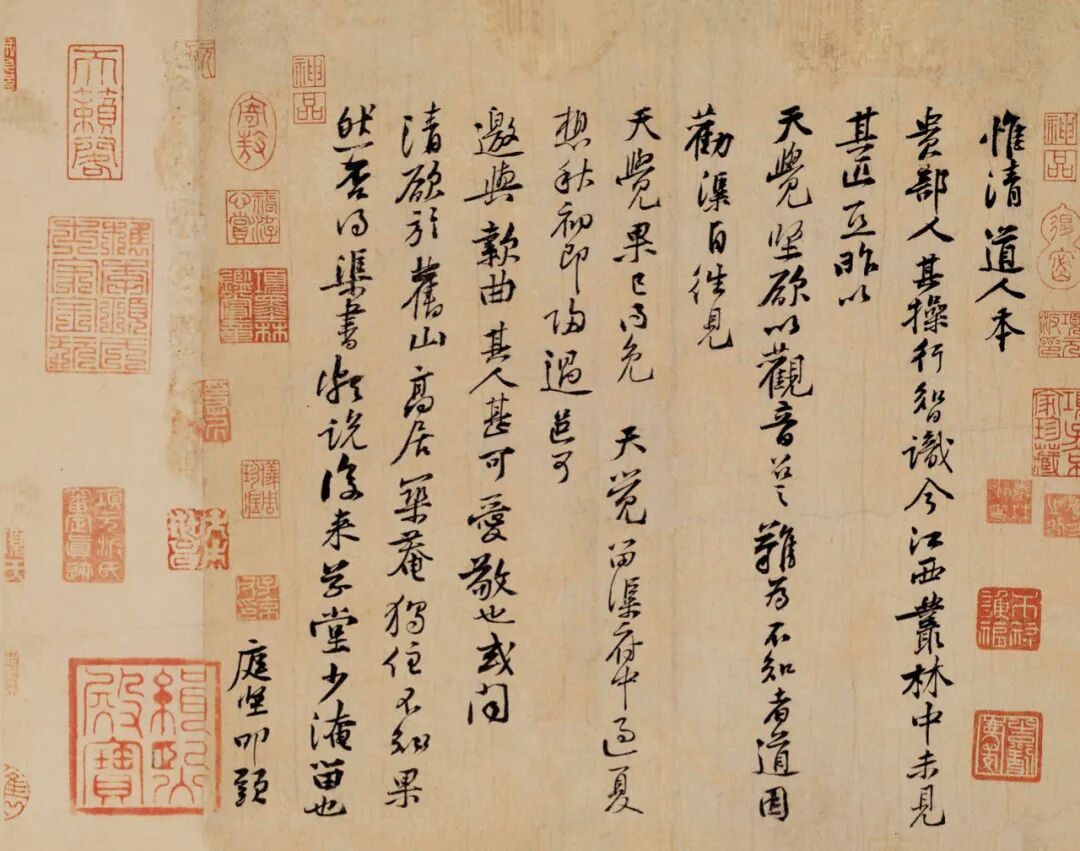 惟清道人本
貴部人其操行智識今江西叢林中未見
其匹亘昨以
天覺堅欲以觀音召之難為不知者道因
勸渠自往見
天覺果已得免 天覺留渠府中過夏
想秋初即歸過邑可
邀與款曲其人甚可愛敬也或問
清欲於舊山高居築菴獨住不知果
然否得渠書頗說後來草堂少淹留也
庭堅叩頭
神品
項子京家珍藏
神品
寄敖
項墨林鑑賞章
天籟閣
緝熙殿寶